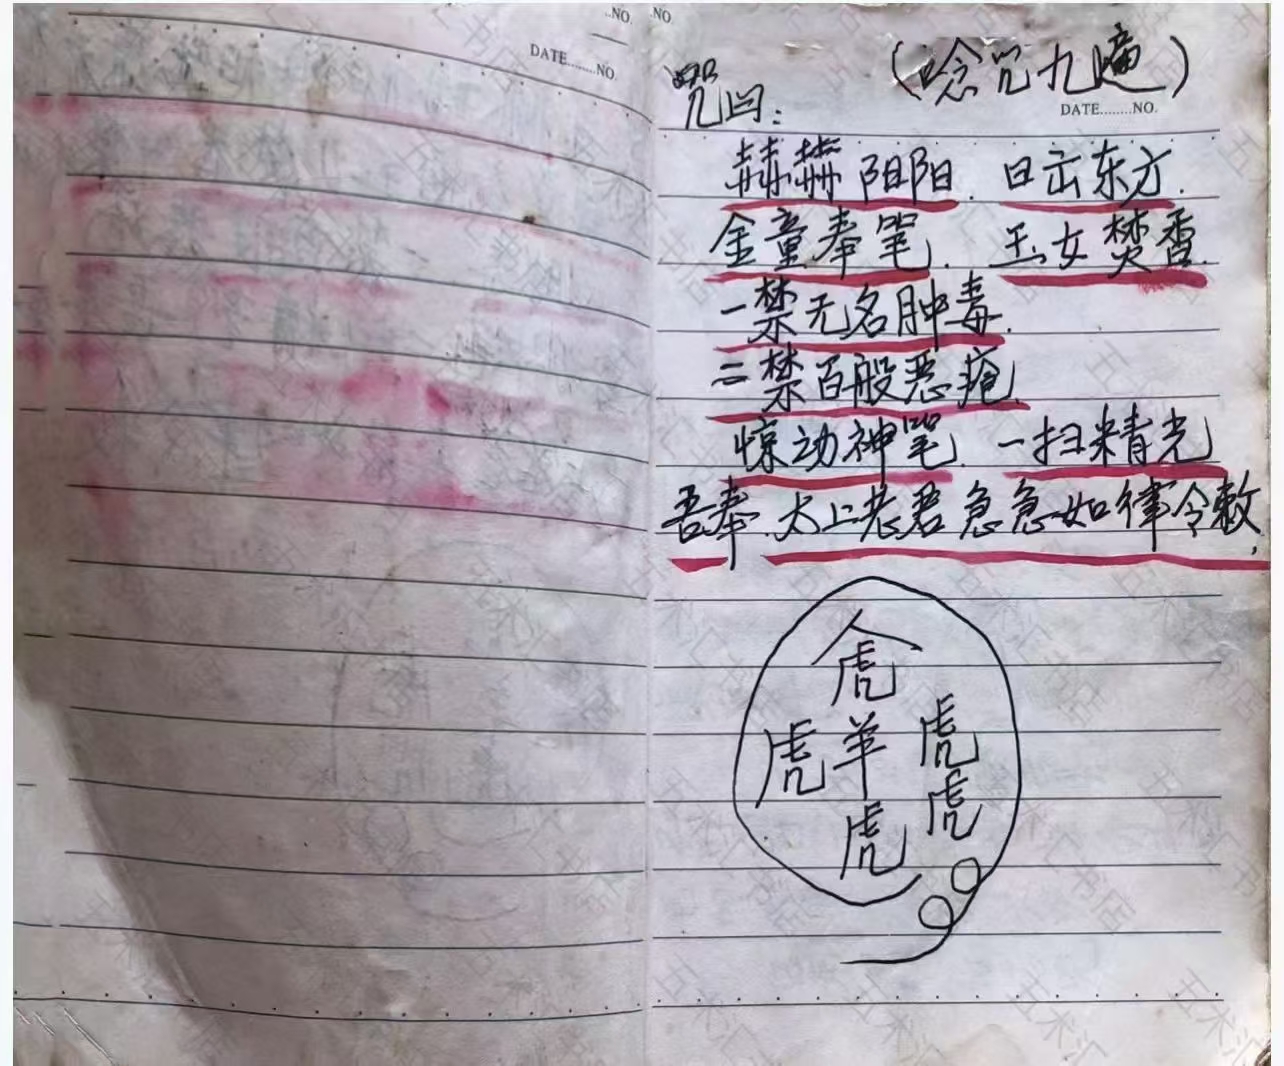 NO.
NO.
DATE........NO.
(唸咒九遍)
DATE........NO.
咒曰:
赫赫阳阳. 日出东方.
金童奉笔. 玉女焚香.
一禁无名肿毒.
二禁百般恶疮.
惊动神笔. 一扫精光
吾奉太上老君急急如律令敕.
虎
虎羊虎
虎
虎
五术汇书店